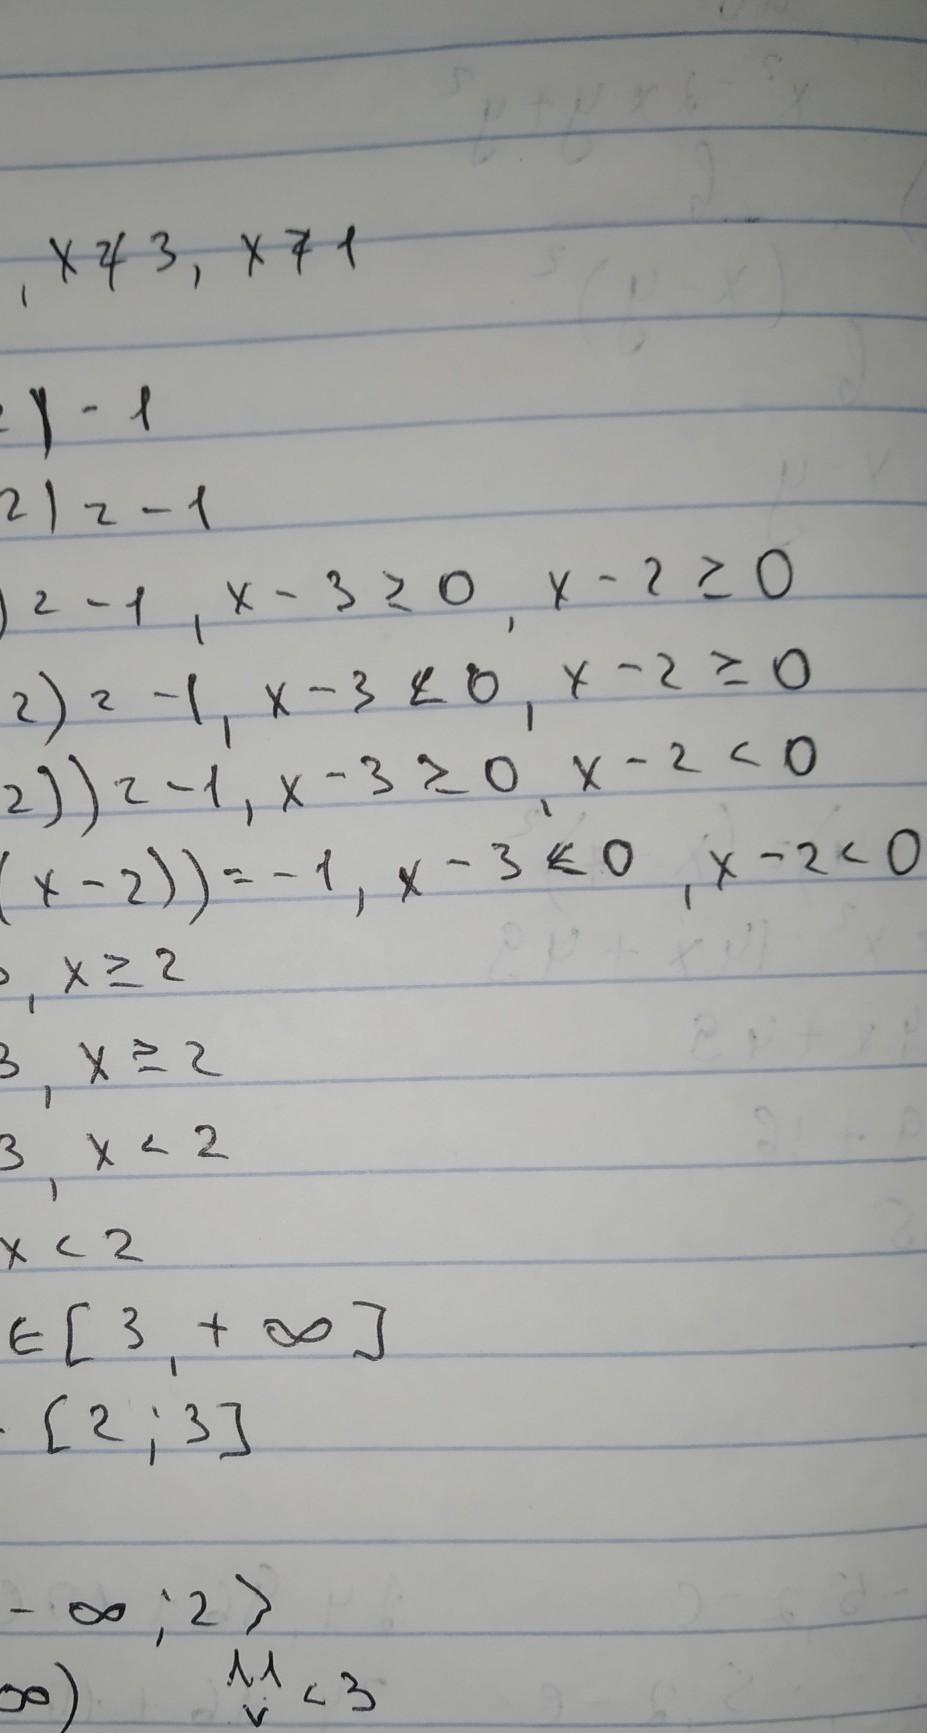 , x ≠ 3, x ≠ 1
) - 1
2) = -1
) = -1, x - 3 ≥ 0, x - 2 ≥ 0
2) = -1, x - 3 < 0, x - 2 ≥ 0
2)) = -1, x - 3 ≥ 0, x - 2 < 0
(x - 2)) = -1, x - 3 < 0, x - 2 < 0
, x ≥ 2
3, x ≥ 2
3, x < 2
x < 2
∈ [3, + ∞]
[2; 3]
- ∞; 2>
∞) < 3